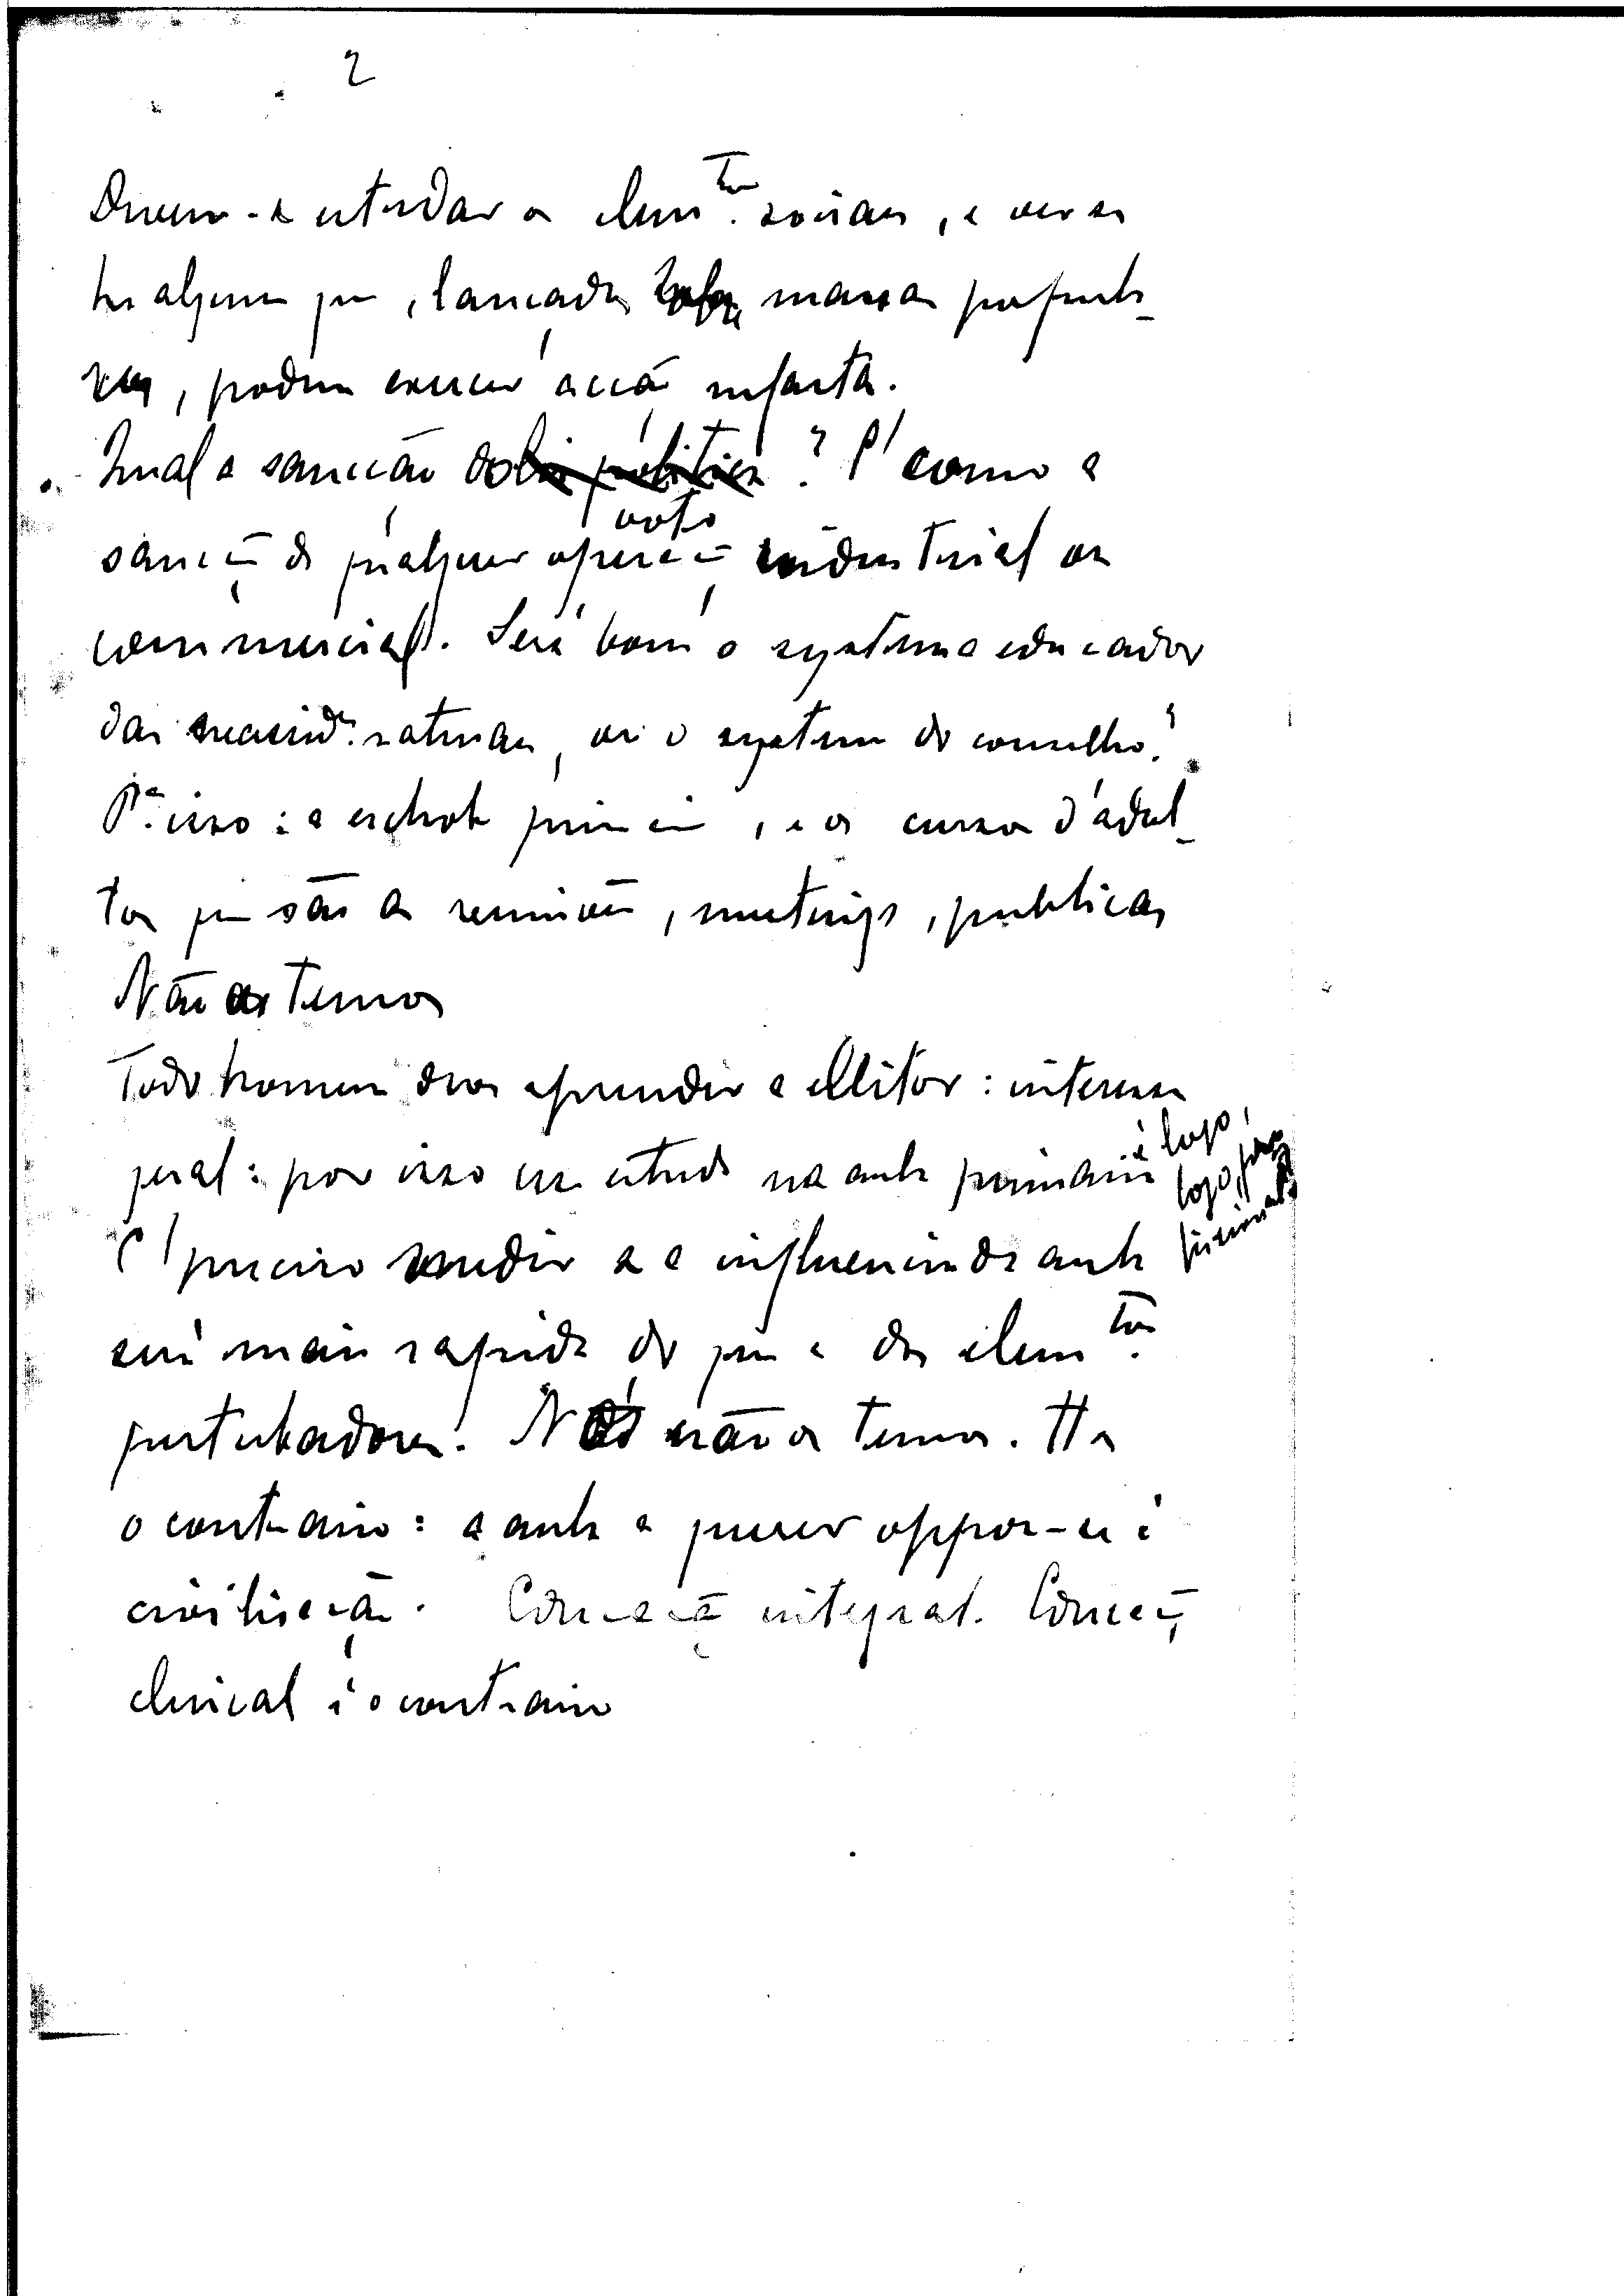 2
Devem-se estudar os elem.tos sociaes, e ver se
ha algum que, lançados sobre massas popula-
res, podem exercer acção nefasta.
Qual a sancção do voto? É como a
sancção de qualquer operação industrial ou
commercial. Será bom o systema educador
das necessid.es naturaes, ou o systema do conselho?
P.a isso: a eschola prim , e os cursos d'adul-
tos que são as reuniões, meetings, publicas
Não as temos
Todo homem deve aprender a : interesse
geral: por isso esse estudo na aula primaria
é logo,
logo, 
É preciso medir se a influencia da aula
será mais rapida do que a dos elem.tos
perturbadores. Nós não os temos. Ha
o contrario: a aula a querer oppor-se á
civilisação. Educação integral. Educação
clerical é o contrario